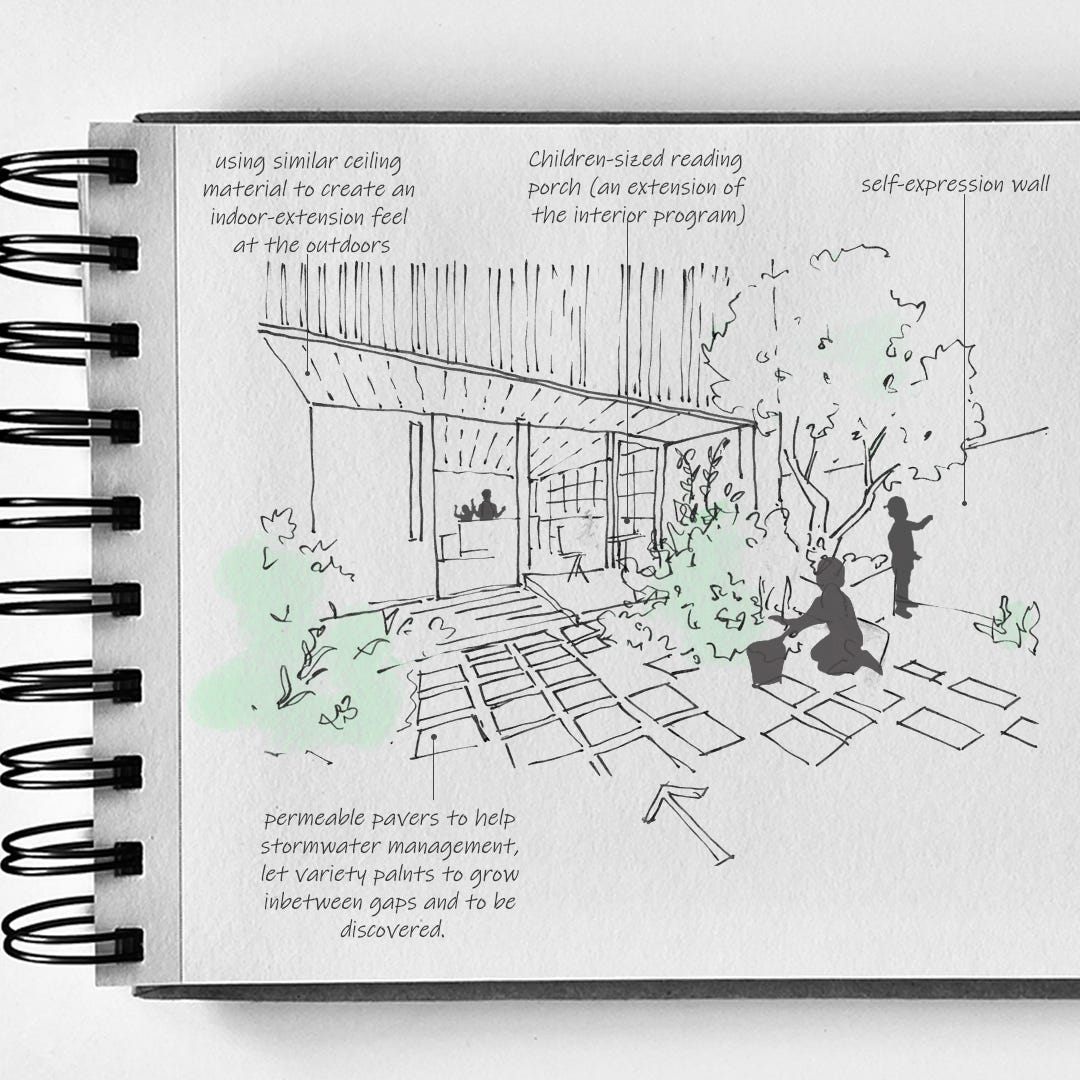 using similar ceiling
material to create an
indoor-extension feel
at the outdoors
Children-sized reading
porch (an extension of
the interior program)
self-expression wall
permeable pavers to help
stormwater management,
let variety palnts to grow
inbetween gaps and to be
discovered.